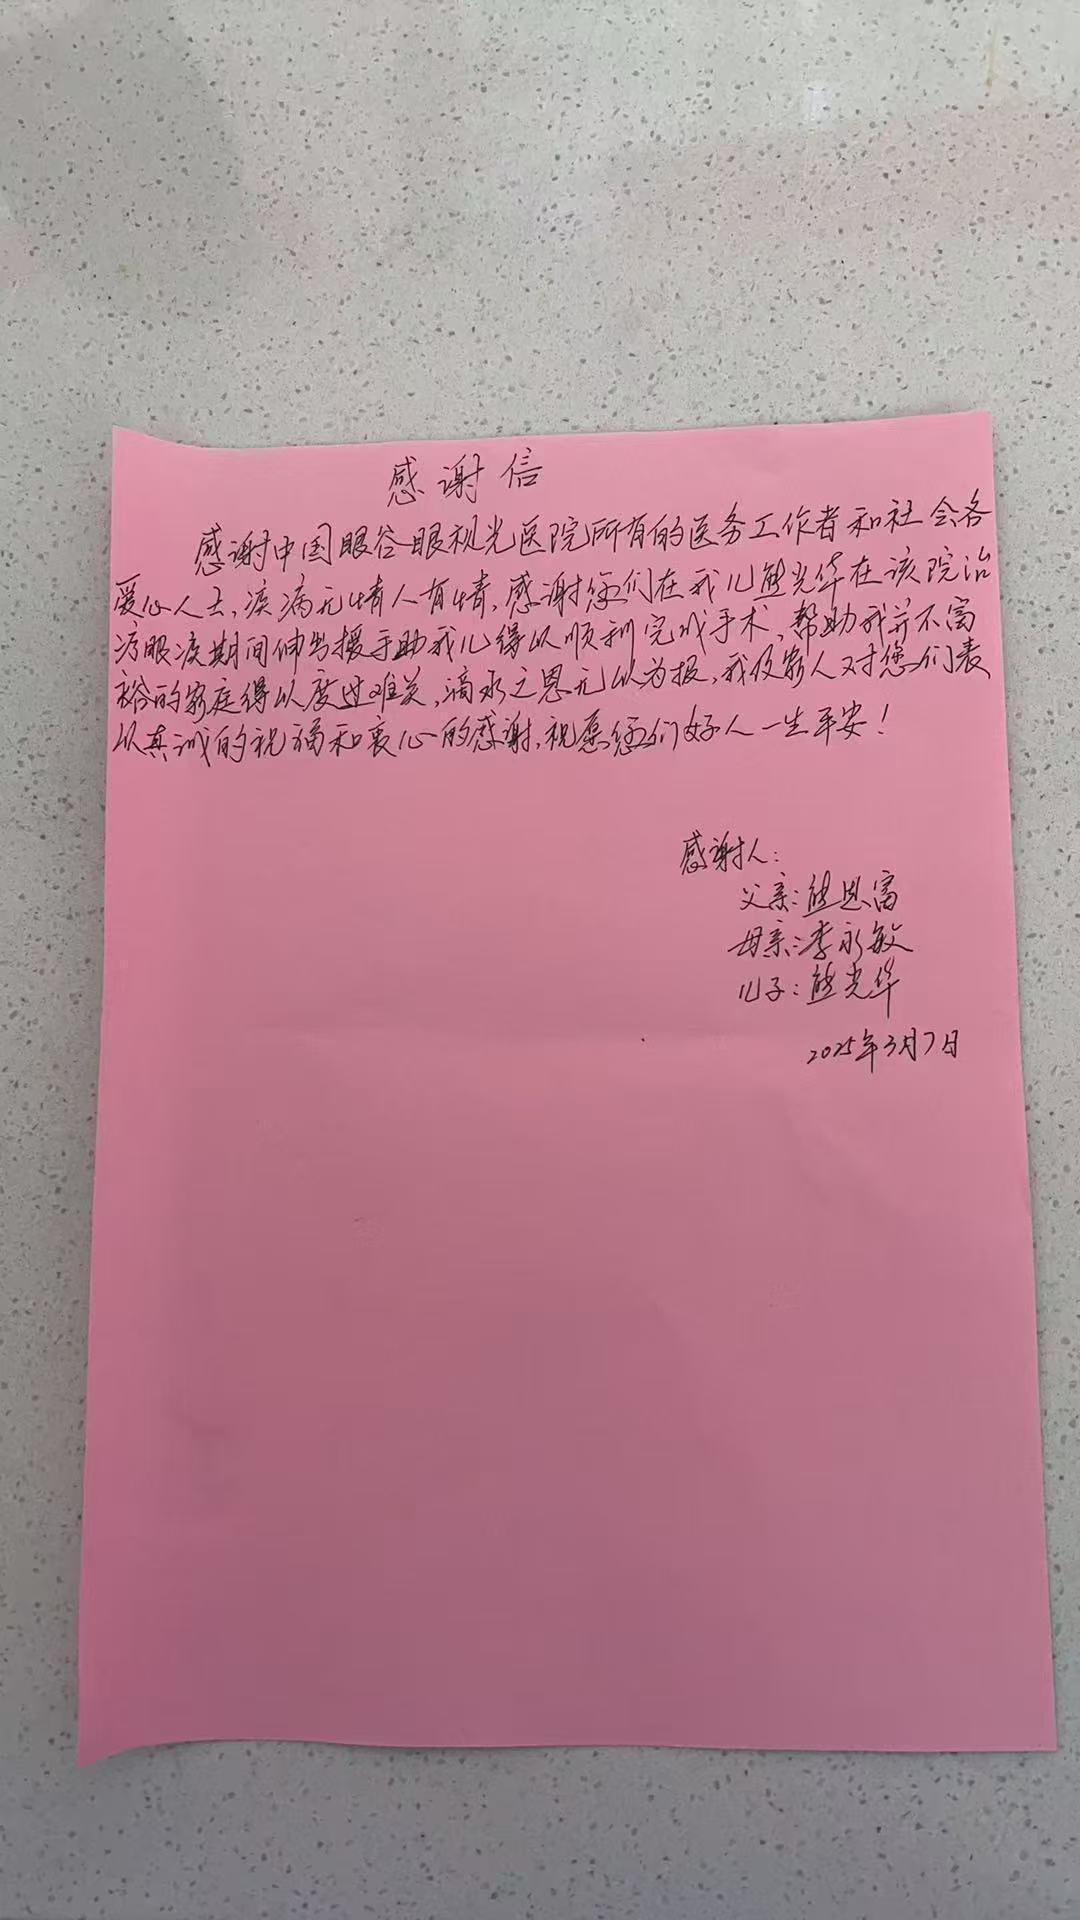 感谢信
感谢中国眼谷眼视光医院所有的医务工作者和社会各
爱心人士,疾病无情人有情,感谢您们在我儿熊光华在该院治
疗眼疾期间伸出援手助我儿得以顺利完成手术,帮助我并不富
裕的家庭得以度过难关,滴水之恩无以为报,我及家人对您们表
以真诚的祝福和衷心的感谢,祝愿您们好人一生平安!
感谢人:
父亲:熊恩富
母亲:李永敏
儿子:熊光华
2025年3月7日